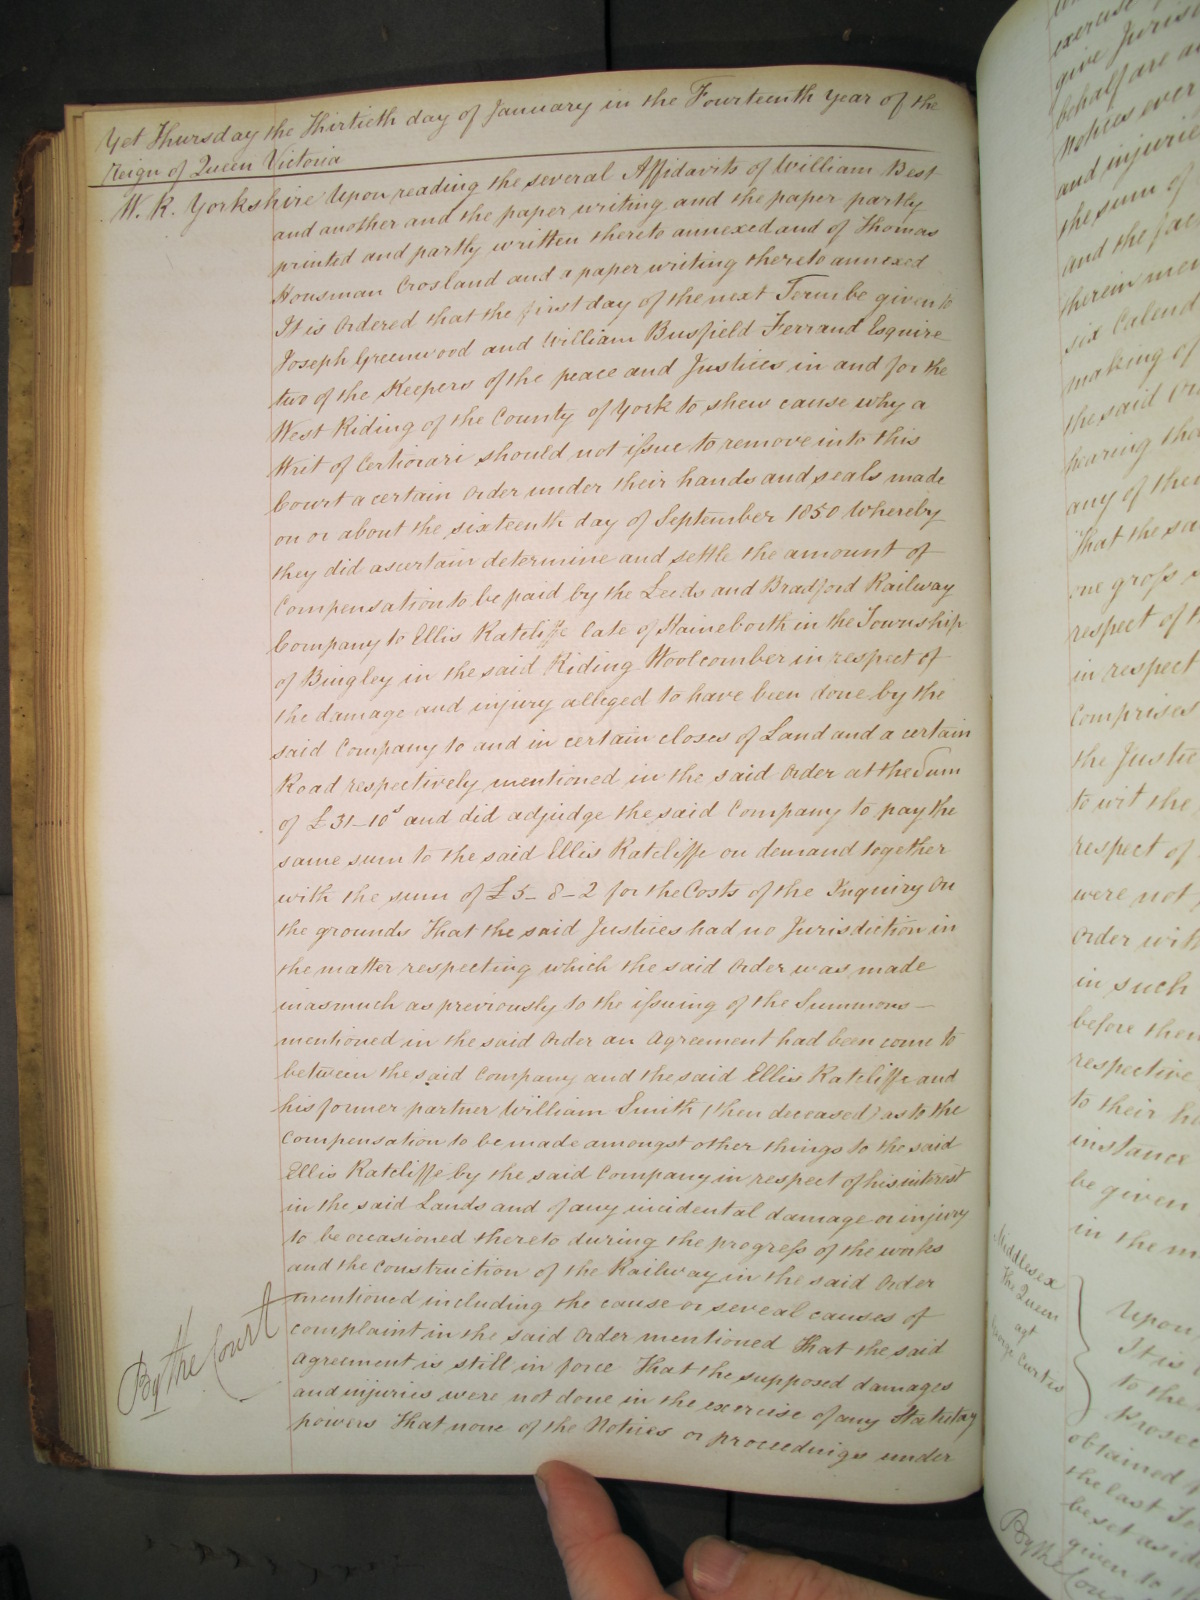 Yet Thursday the Thirtieth day of January in the Fourteenth Year of the
Reign of Queen Victoria
W. R. Yorkshire Upon reading the several Affidavits of William Best
and another and the paper writing and the paper partly
printed and partly written thereto annexed and of Thomas
Housman Crosland and a paper writing thereto annexed
It is Ordered that the first day of the next Term be given to
Joseph Greenwood and William Busfield Ferrand Esquire
two of the Keepers of the peace and Justices in and for the
West Riding of the County of York to shew cause why a
Writ of Certiorari should not issue to remove into this
Court a certain Order under their hands and seals made
on or about the sixteenth day of September 1850 Whereby
they did ascertain determine and settle the amount of
Compensation to be paid by the Leeds and Bradford Railway
Company to Ellis Ratcliffe late of Hainsborth in the Township
of Bingley in the said Riding Woolcomber in respect of
the damage and injury alleged to have been done by the
said Company to and in certain closes of Land and a certain
Road respectively mentioned in the said Order at the Sum
of £31–10s and did adjudge the said Company to pay the
same sum to the said Ellis Ratcliffe on demand together
with the sum of £5–8–2 for the Costs of the Inquiry On
the grounds That the said Justices had no Jurisdiction in
the matter respecting which the said Order was made
inasmuch as previously to the issuing of the Summons –
mentioned in the said Order an Agreement had been come to
between the said Company and the said Ellis Ratcliffe and
his former partner William Smith (then deceased) as to the
Compensation to be made amongst other things to the said
Ellis Ratcliffe by the said Company in respect of his interest
in the said Lands and of any incidental damage or injury
to be occasioned thereto during the progress of the works
and the Construction of the Railway in the said Order
mentioned including the cause or several causes of
complaint in the said Order mentioned That the said
Agreement is still in force That the supposed damages
and injuries were not done in the exercise of any Statutory
powers That none of the Notices or proceedings under
By the Court
exercise
give Juris
behalf are
Notices over
and injurie
the sum of
and the fa
therein men
six Calend
making of
the said Or
hearing tho
any of the
That the sa
one gross
respect of
in respect
Comprises
the Justic
to wit the
respect of
were not
Order with
in such
before them
respective
to their ha
instance
be given
in the m
Middlesex
The Queen
agt
George Curtis
Upon
It is
to the
Prosec
obtained
the last Te
be set aside
given to
By the Cou